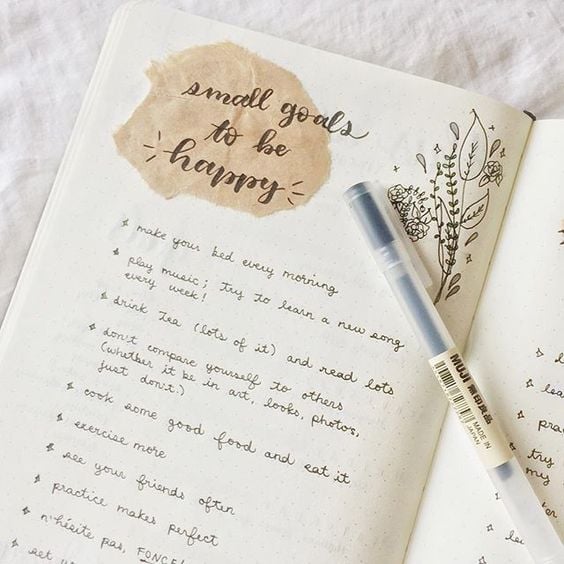 small goals
to be
happy
make your bed every morning
play music; try to learn a new song
every week!
drink tea (lots of it) and read lots
don't compare yourself to others
(whether it be in art, looks, photos,
just don't.)
cook some good food and eat it
exercise more
see your friends often
practice makes perfect
n'hésite pas, FONCE!
set
MUJI 無印良品
MADE IN
JAPAN
lea
prac
try
my